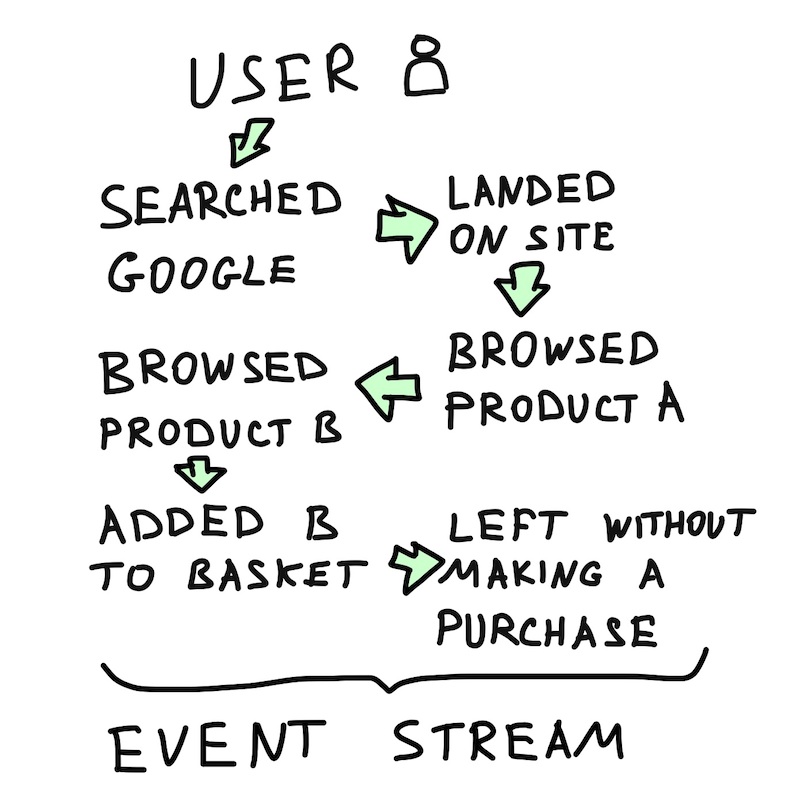 USER
SEARCHED
GOOGLE
LANDED
ON SITE
BROWSED
PRODUCT A
BROWSED
PRODUCT B
ADDED B
TO BASKET
LEFT WITHOUT
MAKING A
PURCHASE
EVENT STREAM